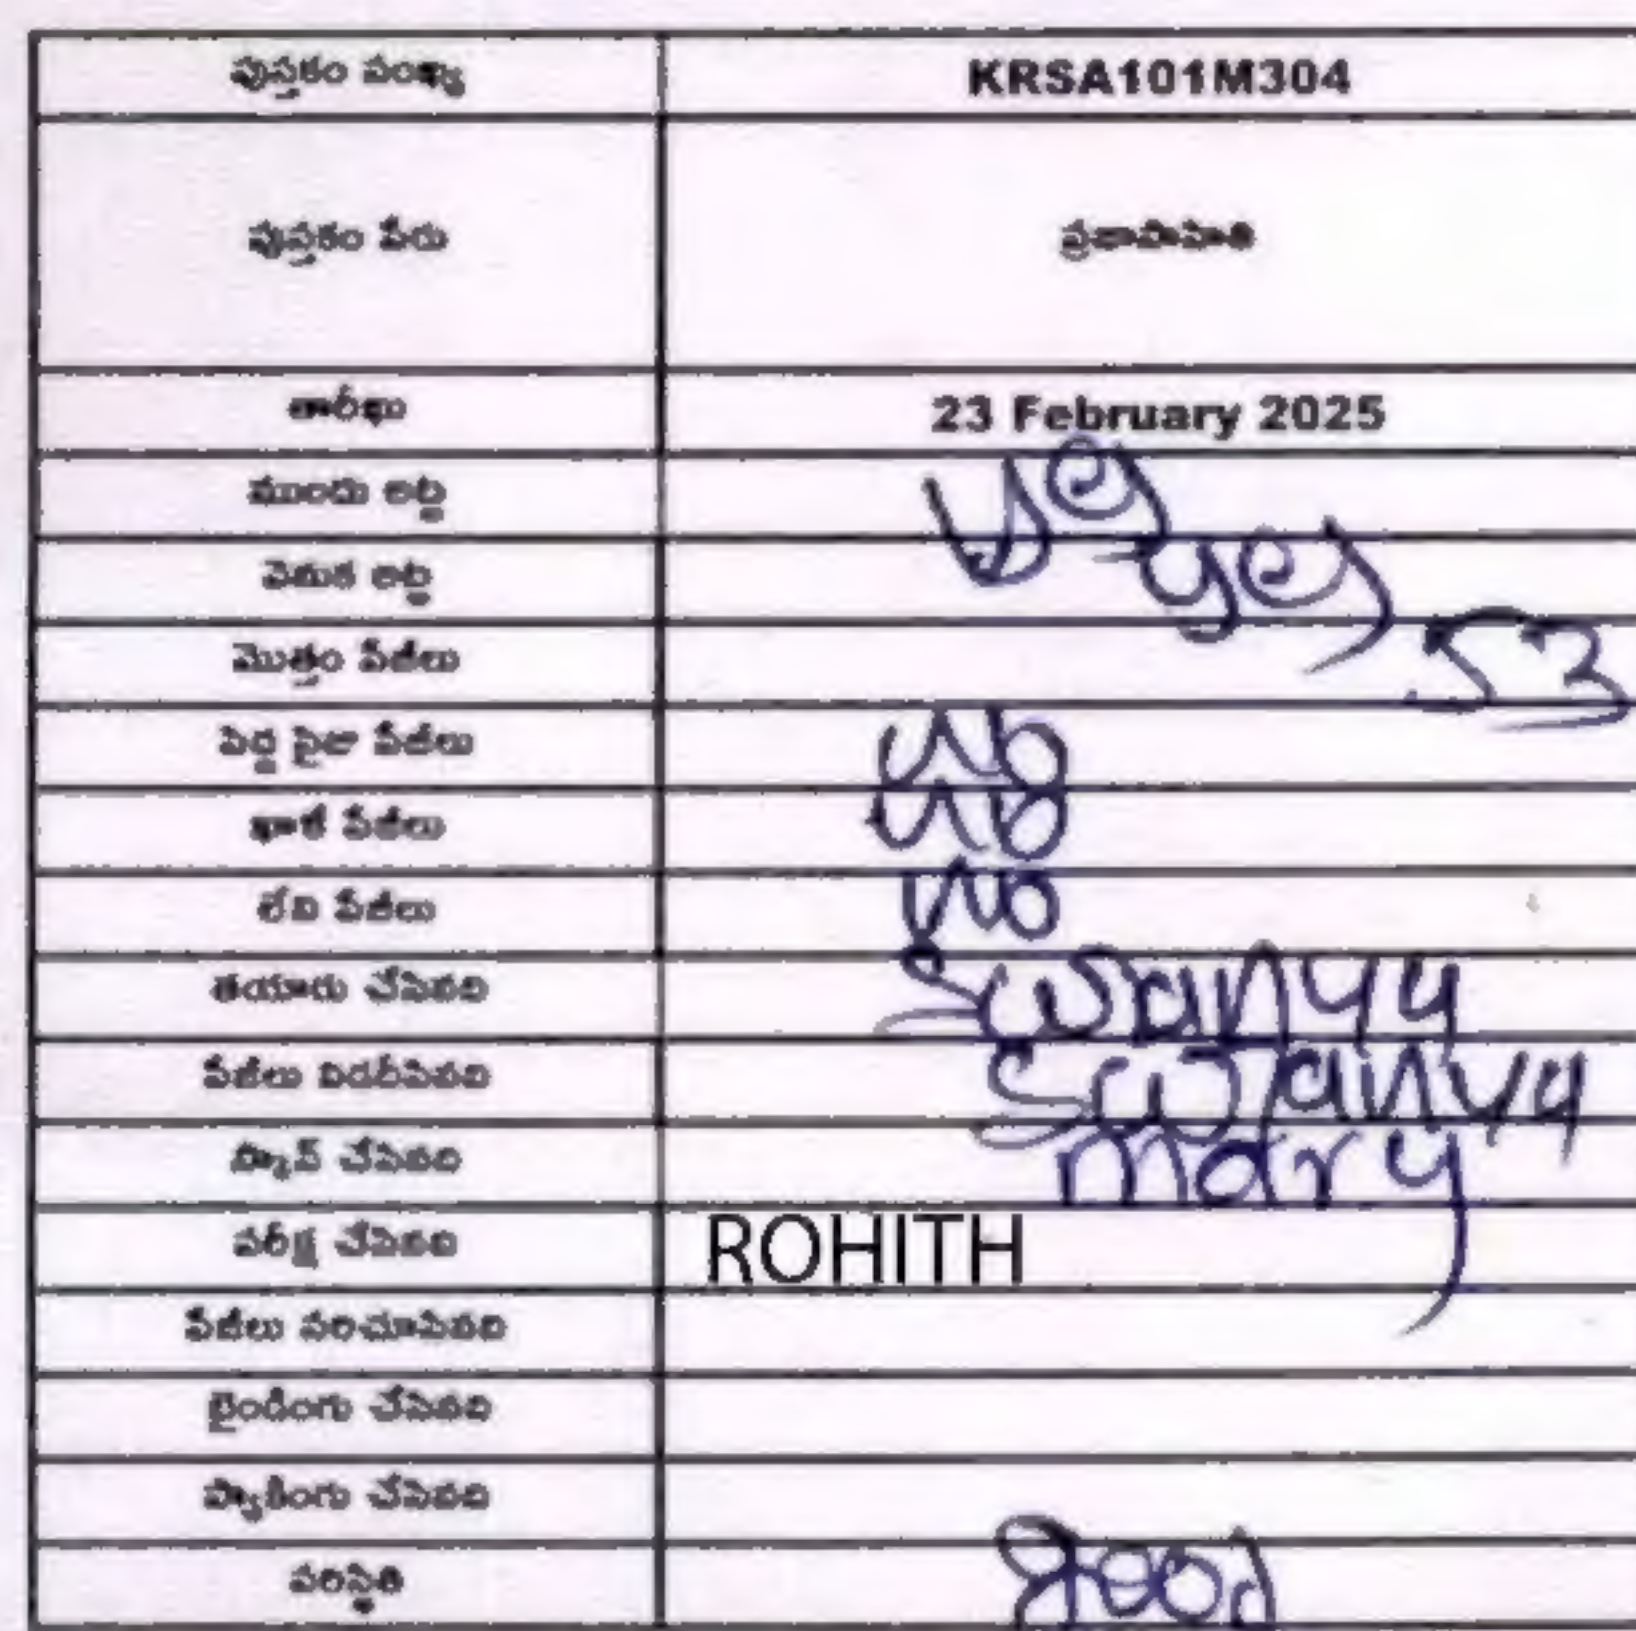 పుస్తకం సంఖ్య KRSA101M304
పుస్తకం పేరు ప్రజాసాహితి
తారీఖు 23 February 2025
ముందు అట్ట yes
వెనుక అట్ట yes
మొత్తం పేజీలు 53
పెద్ద సైజు పేజీలు No
ఖాళీ పేజీలు No
లేని పేజీలు No
తయారు చేసినది
పేజీలు విడదీసినది
స్కాన్ చేసినది mary
పరీక్ష చేసినది ROHITH
పేజీలు సరిచూసినది
బైండింగు చేసినది
ప్యాకింగు చేసినది
పరిస్థితి good